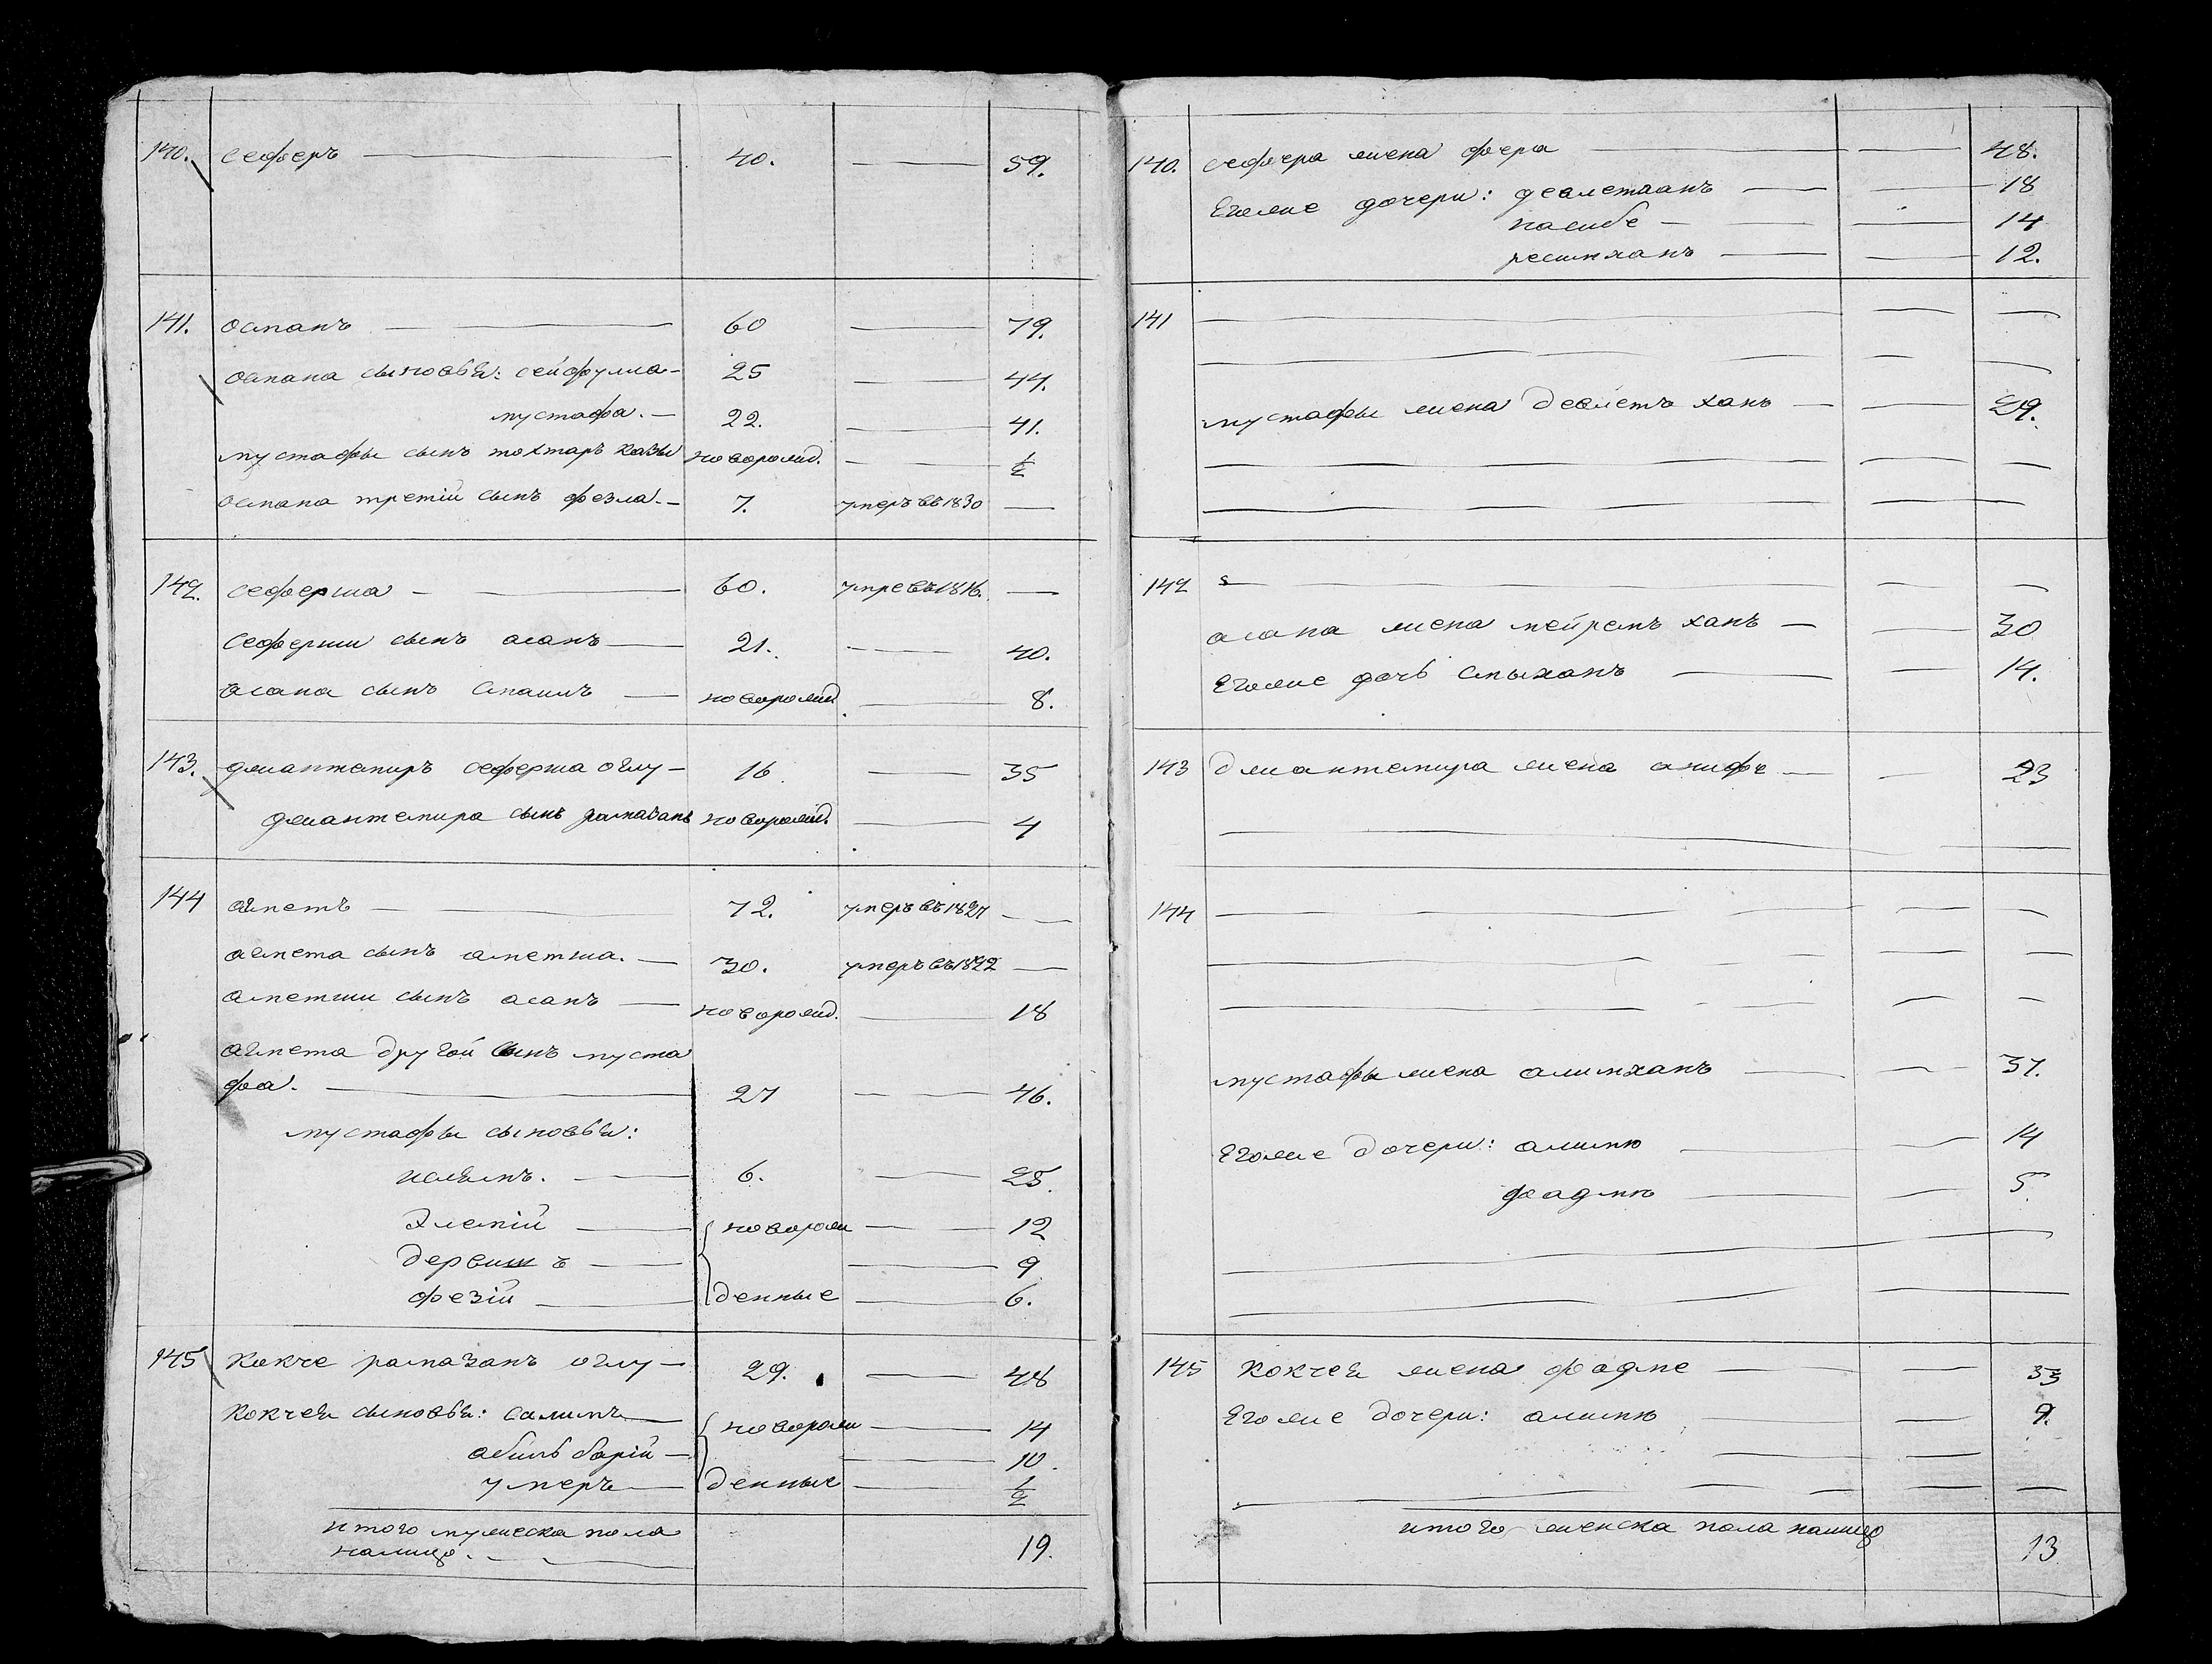 140. сеферъ — 40. — 59.
141. османъ — 60 — 79.
османа сыновья: сейфулла — 25 — 44.
мустафа. — 22. — 41.
мустафы сынъ тохтаръ казы новорожд. — 1/2
османа третій сынъ фезла. — 7. умеръ въ 1830 —
142. сеферша — 60. умре въ 1816. —
сеферши сынъ асанъ — 21. — 40.
асана сынъ смаилъ — новорожд. — 8.
143. джантемиръ сеферша оглу — 16. — 35
джантемира сынъ рамазанъ новорожд. — 4
144 агметъ — 72. умеръ въ 1827 —
агмета сынъ аметша. — 30. умеръ въ 1822 —
аметши сынъ асанъ — новорожд. — 18
агмета другой сынъ муста
фа. — 27 — 46.
мустафы сыновья:
6. — 25.
новорож — 12
дервишъ — 9
фезій — денные — 6.
145 кокче рамазанъ оглу — 29. — 48
кокчея сыновья: салимъ — новорож — 14
абиль барій — 10.
умеръ — денные — 1/2
итого мужеска пола
налицо. — 19.
140. сефера жена фера — 48.
Его же дочери: девлетханъ — 18
насибе — 14
ресимханъ — 12.
141 —
мустафы жена девлетъ ханъ — 29.
142 —
асана жена мейремъ ханъ — 30
Его же дочь 14.
143 джантемира жена анифе — 23
144 —
мустафы жена алимханъ — 37.
Его же дочери: алимю — 14
фадмю — 5.
145 кокчея жена фадме — 33
Его же дочери: алимю — 9.
итого женска пола налицо 13